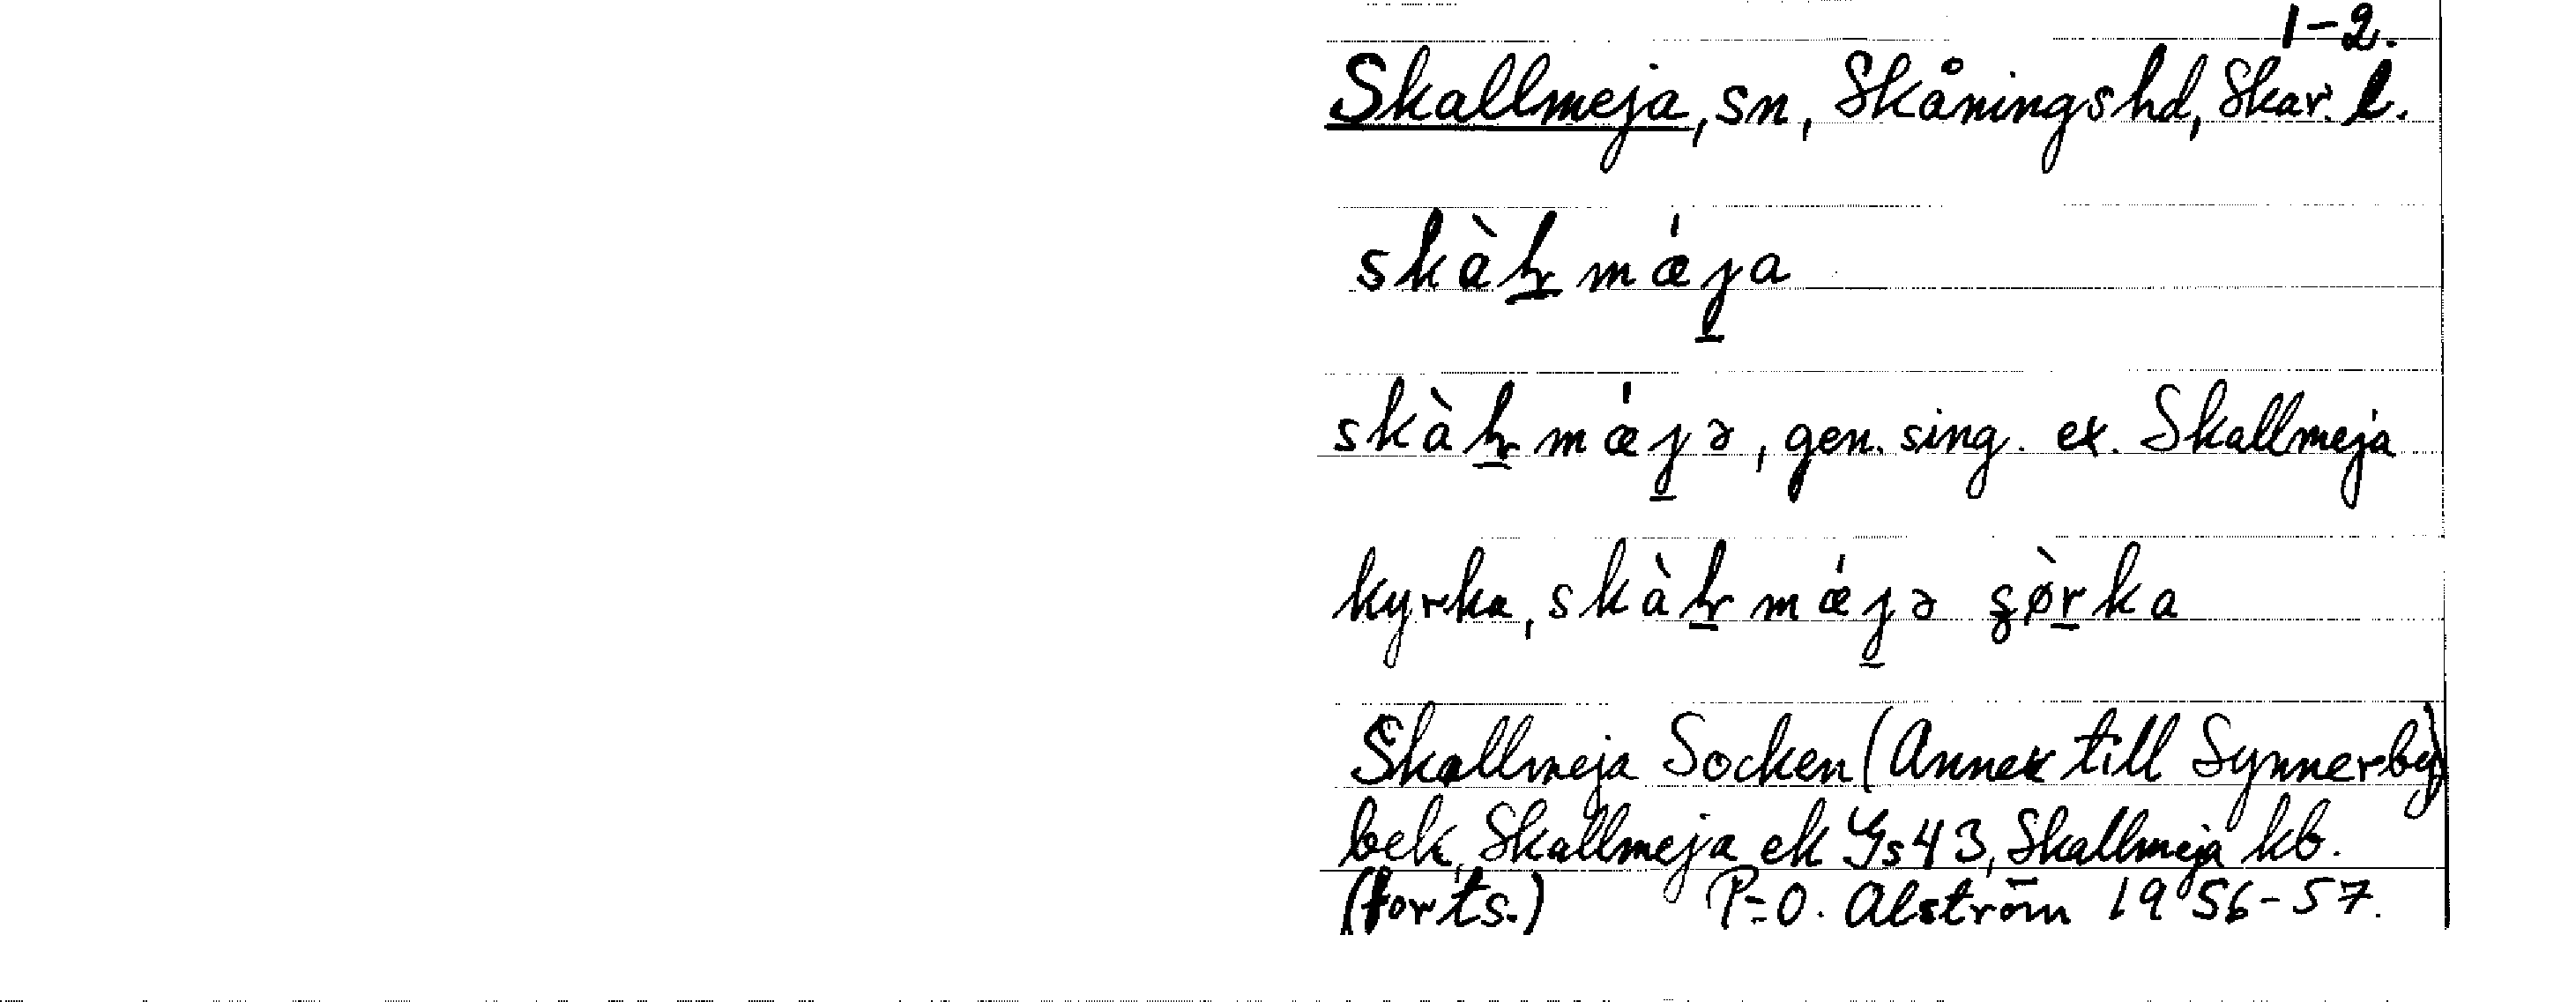 1-2.
Skallmeja, sn, Skånings hd, Skar. l.
skàl̥mǽja
skàl̥mǽjə, gen. sing. ex. Skallmeja
kyrka, skàl̥mǽjə ʂø̀rka
Skallmeja Socken (Annex till Synnerby)
bek, Skallmeja ek Gs43, Skallmeja kb.
(forts.) P-O. Alström 1956-57.